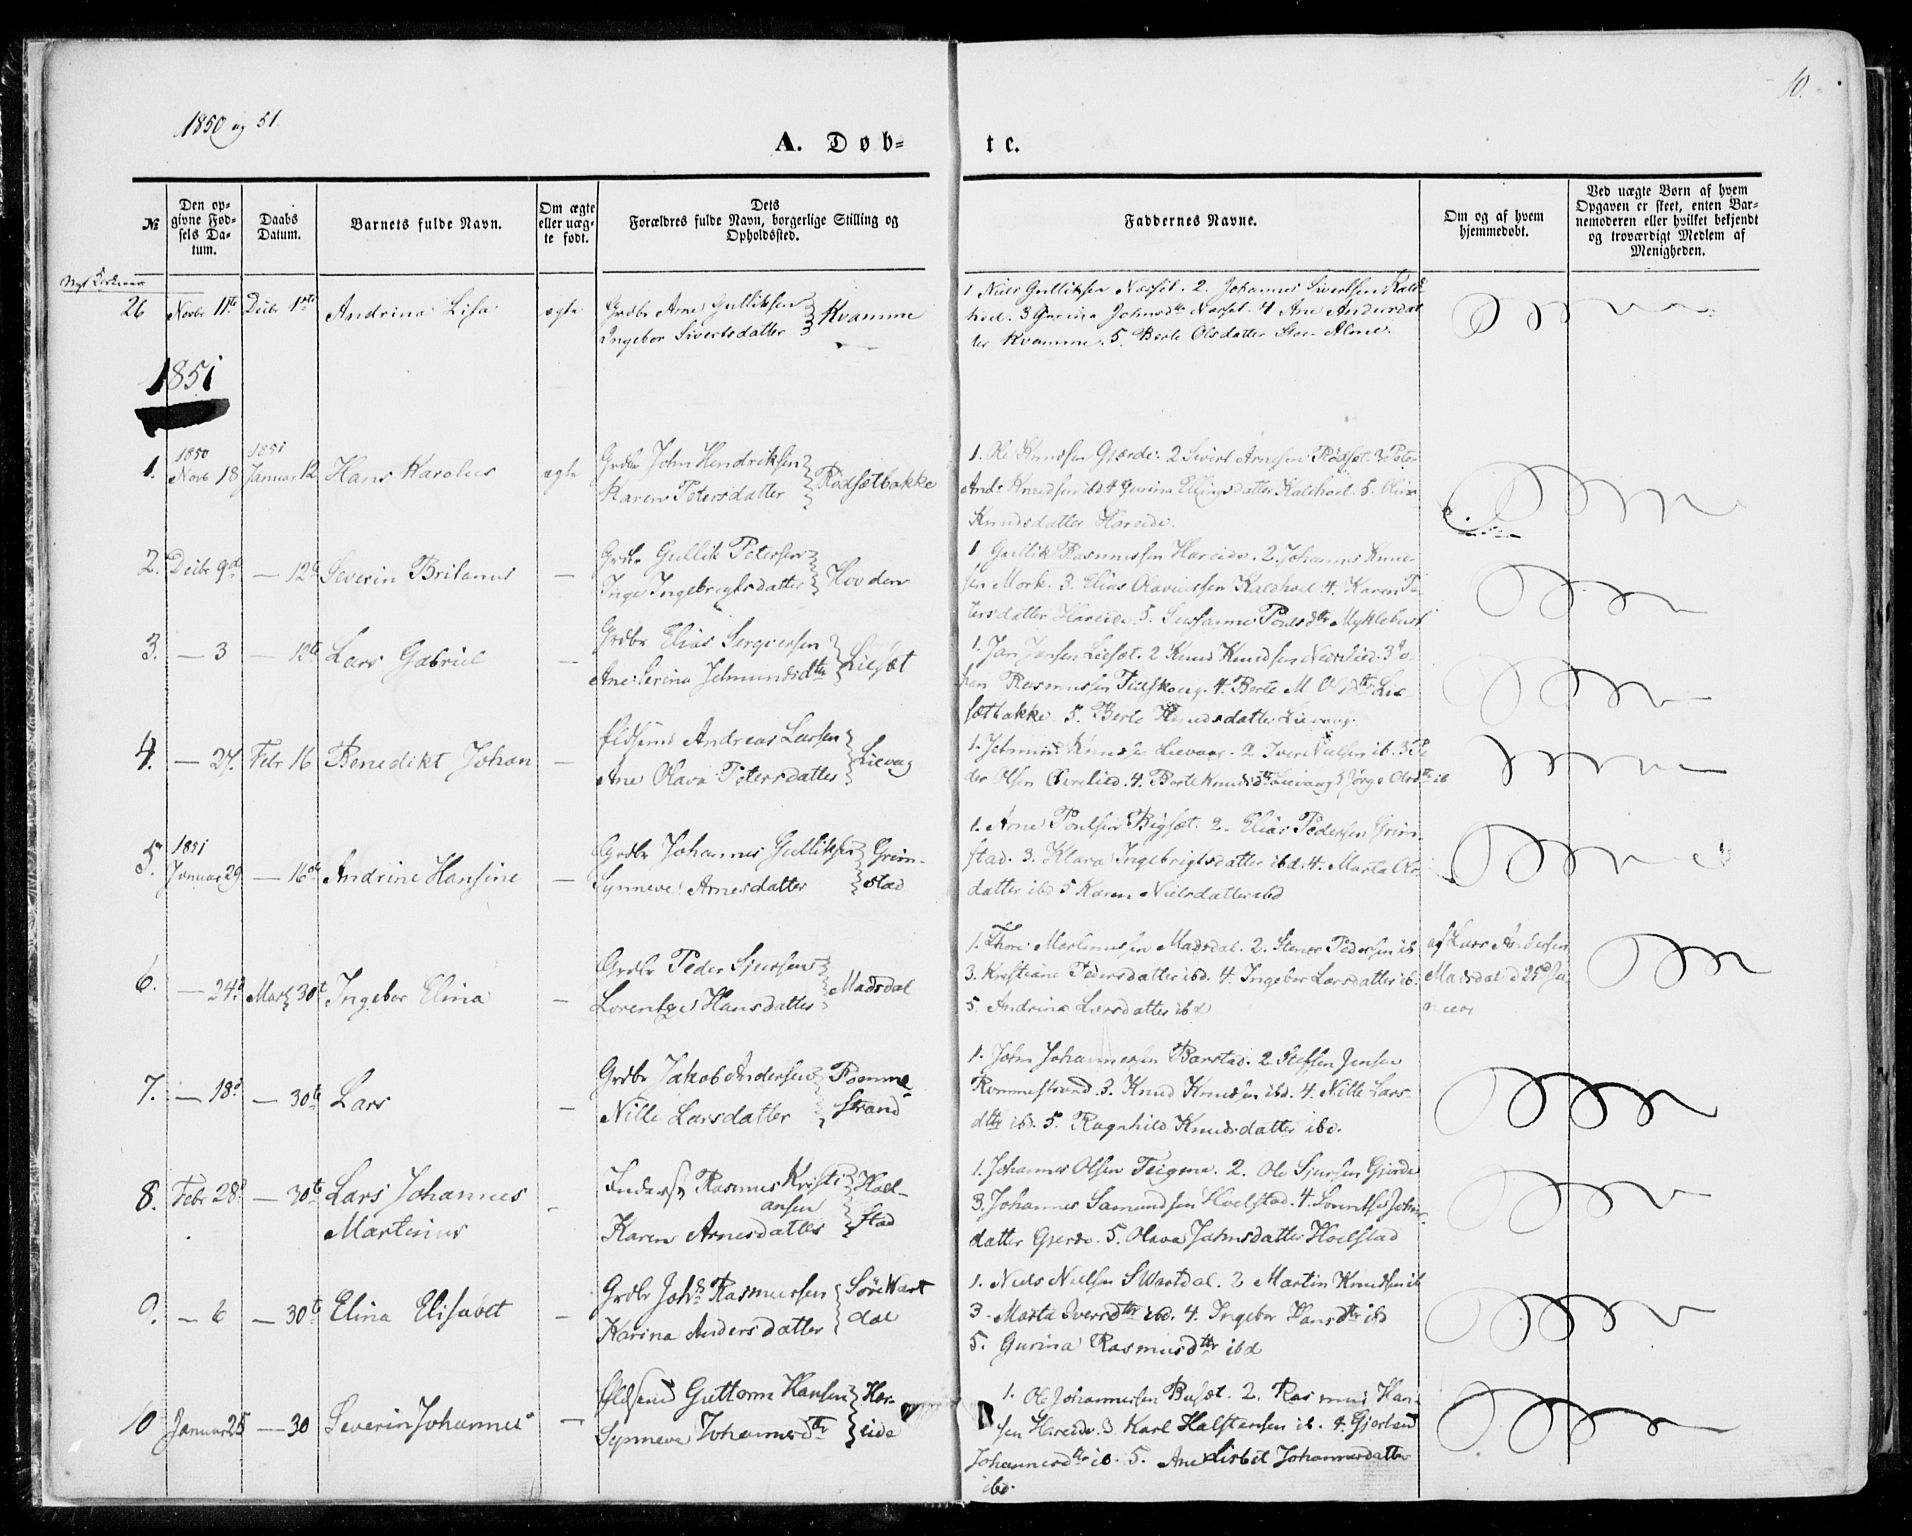 10.
1850 og 51.
A. Døb=
te.
№
Den op=
givne Fød=
sels Da=
tum.
Daabs
Datum.
Barnets fulde Navn.
Om ægte
eller uæg=
te født.
Dets
Forældres fulde Navn, borgerlige Stilling og
Opholdssted.
Faddernes Navne.
Om og af hvem
hjemmedøbt.
Ved uægte Børn af hvem
Opgaven er skeet, enten Bar=
nemoderen eller hvilket bekjendt
og troværdigt Medlem af
Menigheden.
26 Novbr 11te Decbr 1ste Andrina Lisa ægte Grdbr Arne Gulliksen
Ingebor Sivertsdatter Kvamme
1 Niels Gulliksen Næsset. 2. Johannes Sivertsen Kald
hoel. 3 Gurina Johnsdtr Næsset. 4 Ane Andersdat
ter Kvamme. 5. Berte Olsdatter Store Alme.
1851
1. 1850 Novb 18 1851 Januar 12 Hans Karolus ægte Grdbr John Hendriksen
Karen Petersdatter Rødsætbakke
1. Ole Knudsen Gjerde. 2 Sivert Arnesen Rødset. 3 Peter
And: Knudsen ibd 4 Gurina Ellingsdatter Kaldhoel. 5. Oline
Knudsdatter Hareide.
2. Decbr 9de — 12te Severin Britanus — Grdbr Gullik Petersen
Inge Ingebrigtsdatter Hovden
1 Gullik Rasmussen Hareide. 2. Johannes Knud-
sen Mork. 3. Elias Olaviussen Kaldhoel. 4. Karen Pe-
tersdatter Hareide. 5. Susanne Poulsdtr Myklebust
3. — 3 — 12te Lars Gabriel — Grdbr Elias Seversen
Ane Serina Jetmundsdtr Liesæt
1. Jan Jansen Liesæt. 2 Knud Knudsen Nedrelied. 3 Jo-
han Rasmussen Fuelskoug. 4. Berte M Olsdtr Lie
sætbakke. 5. Berte Knudsdatter Lievaag.
4. — 27. Febr 16 Benedikt Johan — Andreas Larsen
Ane Olava Petersdatter Lievag
1. Jetmund Knudsen Lievaag. 2 Iver Nielsen ib. 3 Pe
der Olsen Øvrelied. 4. Berte Knudsdtr Lievaag 5 Jørge Olsdtr ib
5. 1851 Januar 29 — 16de Andrine Hansine — Grdbr Johannes Gulliksen
Synneve Arnesdatter Grim-
stad
1. Arne Poulsen Bigset. 2. Elias Pedersen Grim-
stad. 3. Klara Ingebrigtsdatter ibd. 4. Marta Ols-
datter ibd 5 Karen Nielsdatter ibd
6. — 24de Marts 30te Ingebor Elina — Grdbr Peder Sjursen
Lorentse Hansdatter Madsdal
1. Thore Martinussen Madsdal. 2. Stener Pedersen ib
3. Kristiane Pedersdatter ibd. 4. Ingebor Larsdatter ib.
5. Andrina Larsdatter ibd
af Lars Andersen
Madsdal d 25de Ja
nuar
7. — 18de — 30te Lars — Grdbr Jakob Andersen
Nille Larsdatter Romme-
strand
1. John Johannessen Barstad. 2 Steffen Jensen
Rommestrand. 3. Knud Knudsen ibd. 4. Nille Lars-
dtr ibd. 5. Ragnhild Knudsdatter ibd.
8. Febr 28de — 30te Lars Johannes
Martinus — Inderst Rasmus Kristi
ansen
Karen Arnesdatter Hoel-
stad
1. Johannes Olsen Teigene. 2. Ole Sjursen Gjerde
3. Johannes Samundsen Hoelstad. 4. Lorentse Johns-
datter Gjerde. 5. Olava Jahnsdatter Hoelstad
9. — 6 — 30te Elina Elisabet — Grdbr Johs Rasmussen
Karina Andersdatter Søre Vart
dal
1. Niels Nielsen S Vartdal. 2 Martin Knudsen ib
3. Marta Iversdtr ibd. 4. Ingebor Hansdtr ibd
5. Gurina Rasmusdtr ibd
10 Januar 25 — 30 Severin Johannes — Guttorm Hansen
Synneve Johannesdtr Har-
eide
1. Ole Johannessen Busæt. 2. Rasmus Han-
sen Hareide. 3 Karl Halstensen ib. 4. Gjertrud
Johannesdtr ib. 5. Ane Lisbet Johannesdatter
ibd.